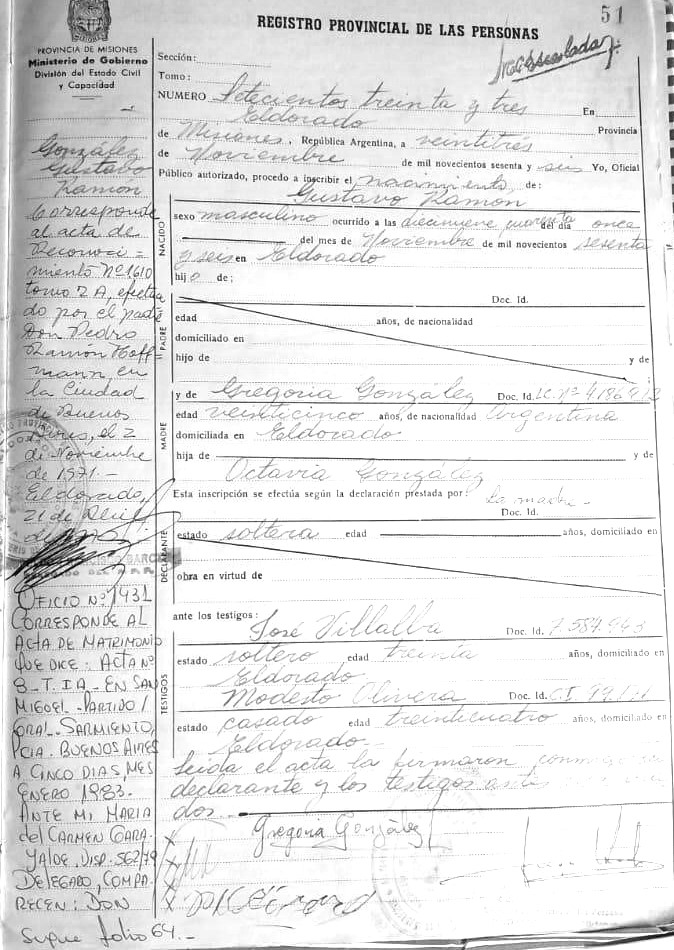 51
REGISTRO PROVINCIAL DE LAS PERSONAS
PROVINCIA DE MISIONES
Ministerio de Gobierno
División del Estado Civil
y Capacidad
Sección:
Tomo:
NUMERO Setecientos treinta y tres En
Eldorado Provincia
de Misiones, República Argentina, a veintitrés
de Noviembre de mil novecientos sesenta y seis Yo, Oficial
Público autorizado, procedo a inscribir el nacimiento de:
NACIDO
Gustavo Ramon
sexo masculino ocurrido a las diecinueve cuarenta del día once
del mes de Noviembre de mil novecientos sesenta
y seis en Eldorado
hijo de;
PADRE
Doc. Id.
edad años, de nacionalidad
domiciliado en
hijo de y de
MADRE
y de Gregoria González Doc. Id. LC. Nº
edad veinticinco años, de nacionalidad Argentina
domiciliada en Eldorado
hija de y de
Octavia González
Esta inscripción se efectúa según la declaración prestada por: la madre -
DECLARANTE
Doc. Id.
estado soltera edad años, domiciliado en
obra en virtud de
ante los testigos:
TESTIGOS
José Villalba Doc. Id. 7.584.943
estado soltero edad treinta años, domiciliado en
Eldorado
Modesto Olivera Doc. Id. C.I.
estado casado edad treinticuatro años, domiciliado en
Eldorado.-
Leida el acta la firmaron
declarante y los testigos
dos.-
Gregoria González
González
Gustavo
Ramon
Corresponde
al acta de
Reconoci-
miento Nº 1610
tomo 2 A, efectua
do por el padre
Don Pedro
Ramón Hoff
mann en
la Ciudad
de Buenos
Aires, el 2
de Noviembre
de 1971.-
Eldorado,
21 de
OFICIO Nº 1431
CORRESPONDE AL
ACTA DE MATRIMONIO
QUE DICE: ACTA Nº
8_T.IA_EN SAN
MIGUEL - PARTIDO/
GRAL. SARMIENTO,
PCIA. BUENOS AIRES
A CINCO DIAS, MES
ENERO 1983.
ANTE MI MARIA
del CARMEN GARA-
YALDE, DISP. 562/79
DELEGADO, COMPA-
RECEN: DON
Sigue folio 64.-